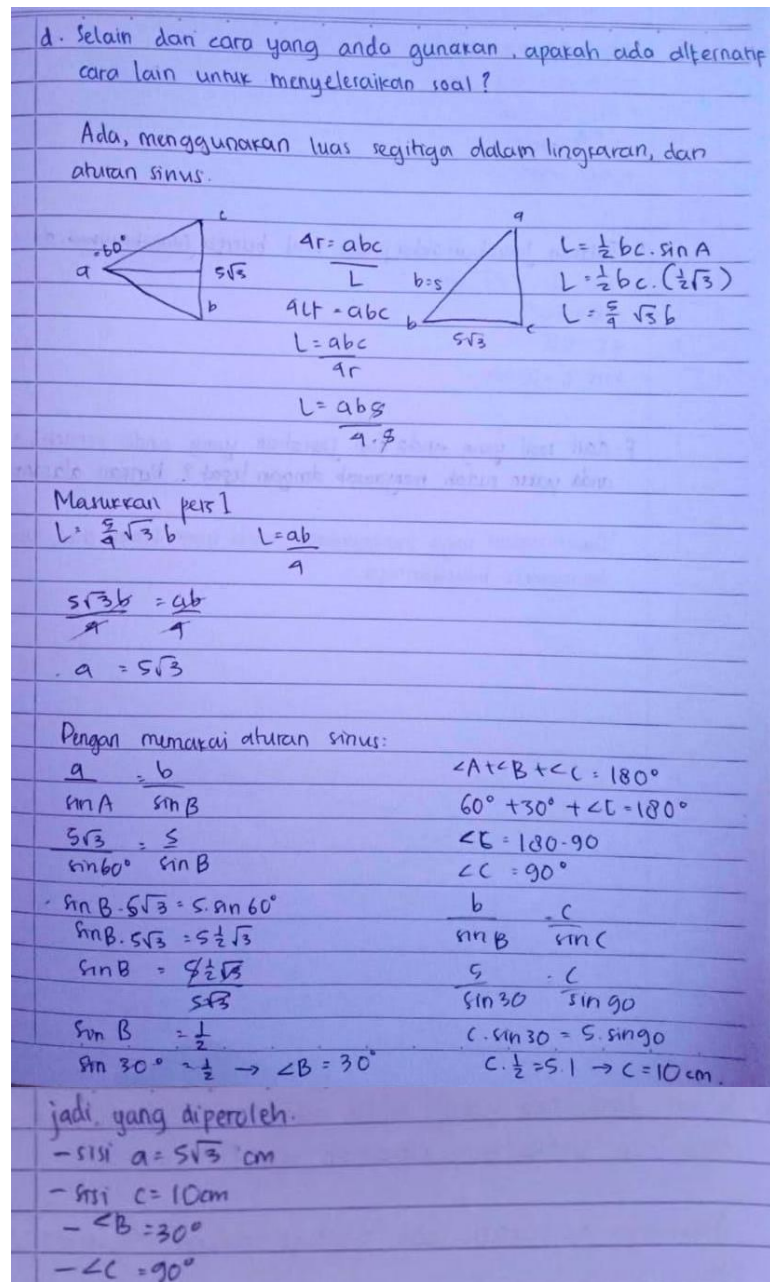 d. Selain dari cara yang anda gunakan, apakah ada alternatif
cara lain untuk menyelesaikan soal?
Ada, menggunakan luas segitiga dalam lingkaran, dan
aturan sinus.
60°
a
c
5√3
b
4r = abc / L
4Lr = abc
L = abc / 4r
L = ab5 / 4.5
a
b=5
b
5√3
c
L = ½ bc. sin A
L = ½ bc. (½√3)
L = 5/4 √3 b
Masukkan pers 1
L = 5/4 √3 b   L = ab / 4
5√3b / 4 = ab / 4
a = 5√3
Dengan memakai aturan sinus:
a / sin A = b / sin B
5√3 / sin 60° = 5 / sin B
sin B . 5√3 = 5. sin 60°
sin B. 5√3 = 5 ½ √3
sin B = 5 ½ √3 / 5√3
Sin B = ½
Sin 30° = ½ → ∠B = 30°
∠A+∠B+∠C = 180°
60° + 30° + ∠C = 180°
∠C = 180-90
∠C = 90°
b / sin B = c / sin C
5 / sin 30 = c / sin 90
c. sin 30 = 5. sin 90
c. ½ = 5.1 → c = 10 cm.
jadi, yang diperoleh.
- sisi a = 5√3 cm
- sisi c = 10cm
- ∠B = 30°
- ∠C = 90°